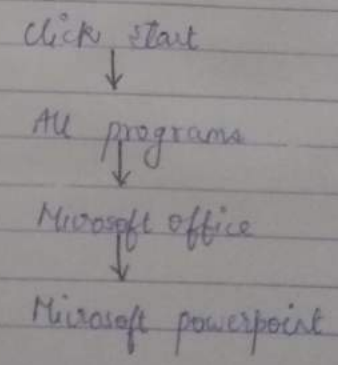 click start
All programs
Microsoft office
Microsoft powerpoint